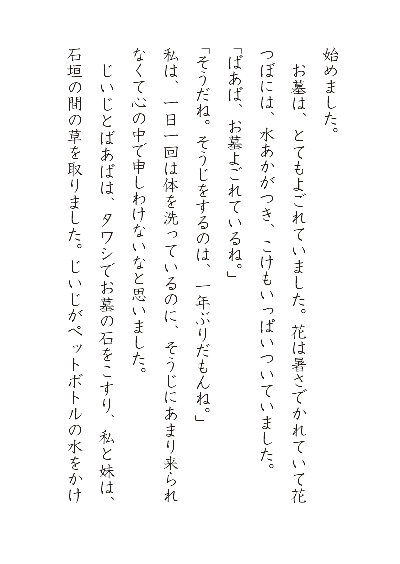 始めました。
　お墓は、とてもよごれていました。花は暑さでかれていて花
つぼには、水あかがつき、こけもいっぱいついていました。
「ばあば、お墓よごれているね。」
「そうだね。そうじをするのは、一年ぶりだもんね。」
私は、一日一回は体を洗っているのに、そうじにあまり来られ
なくて心の中で申しわけないなと思いました。
　じいじとばあばは、タワシでお墓の石をこすり、私と妹は、
石垣の間の草を取りました。じいじがペットボトルの水をかけ